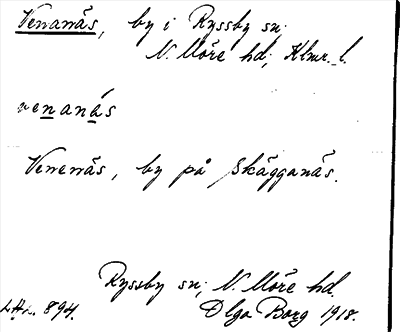 Venanäs, by i Ryssby sn;
N. Möre hd; Klmr. l.
venanä́s
Venenäs, by på Skägganäs.
Ryssby sn; N. Möre hd.
Olga Borg 1918.
894.